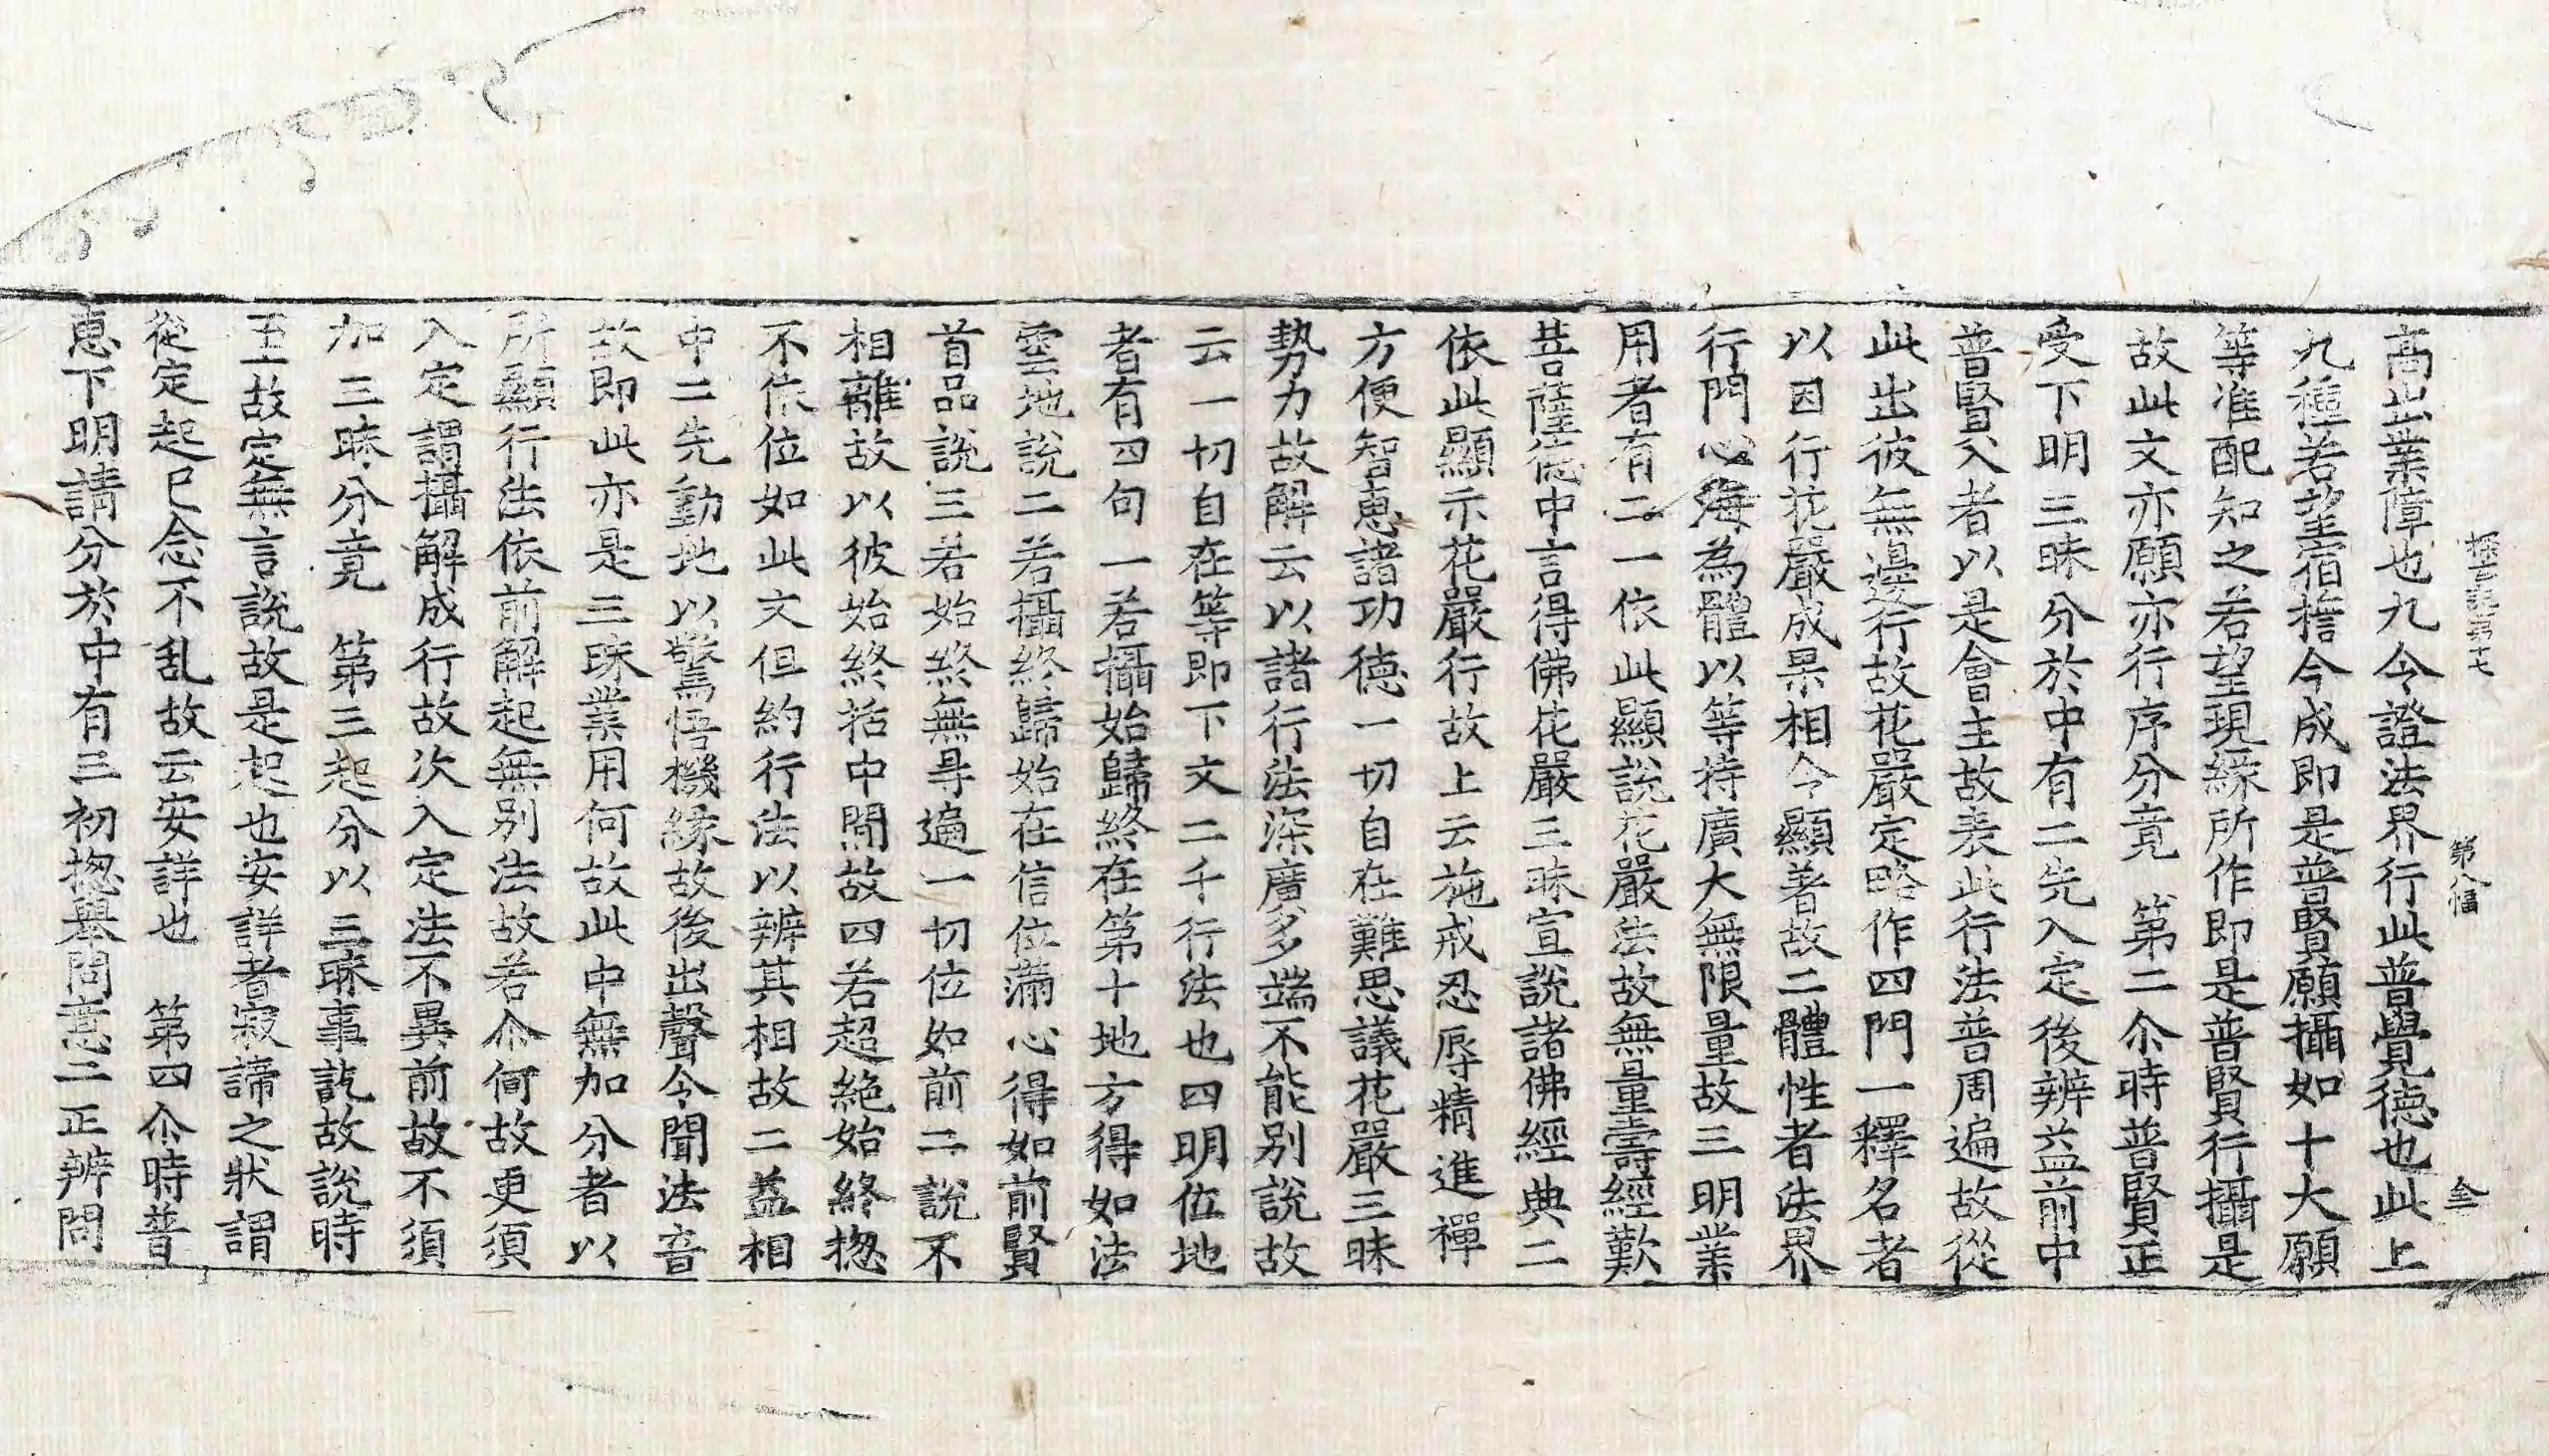 第十七 第八幅 仝
高出業障也九令證法界行此普覺德也此上
九種若望宿擔今成即是普賢願攝如十大願
等准配知之若望現緣所作即是普賢行攝是
故此文亦願亦行序分竟 第二尒時普賢正
受下明三昧分於中有二先入定後辨益前中
普賢入者以是會主故表此行法普周遍故從
此出彼無邊行故花嚴定略作四門一釋名者
以因行花嚴成果相令顯著故二體性者法界
行門心海為體以等持廣大無限量故三明業
用者有二一依此顯說花嚴法故無量壽經歎
菩薩德中言得佛花嚴三昧宣說諸佛經典二
依此顯示花嚴行故上云施戒忍辱精進禪
方便智恵諸功德一切自在難思議花嚴三昧
勢力故解云以諸行法深廣多端不能別說故
云一切自在等即下文二千行法也四明位地
者有四句一若攝始歸終在第十地方得如法
雲地說二若攝終歸始在信位滿心得如前賢
首品說三若始終無㝵遍一切位如前二說不
相離故以彼始終括中間故四若超絕始終揔
不依位如此文但約行法以辨其相故二益相
中二先動地以驚悟機緣故後出聲令聞法音
故即此亦是三昧業用何故此中無加分者以
所顯行法依前解起無別法故若尒何故更須
入定謂攝解成行故次入定法不異前故不須
加三昧分竟 第三起分以三昧事訖故說時
至故定無言說故是起也安詳者寂諦之狀謂
從定起已念不乱故云安詳也 第四尒時普
恵下明請分於中有三初揔舉問意二正辨問